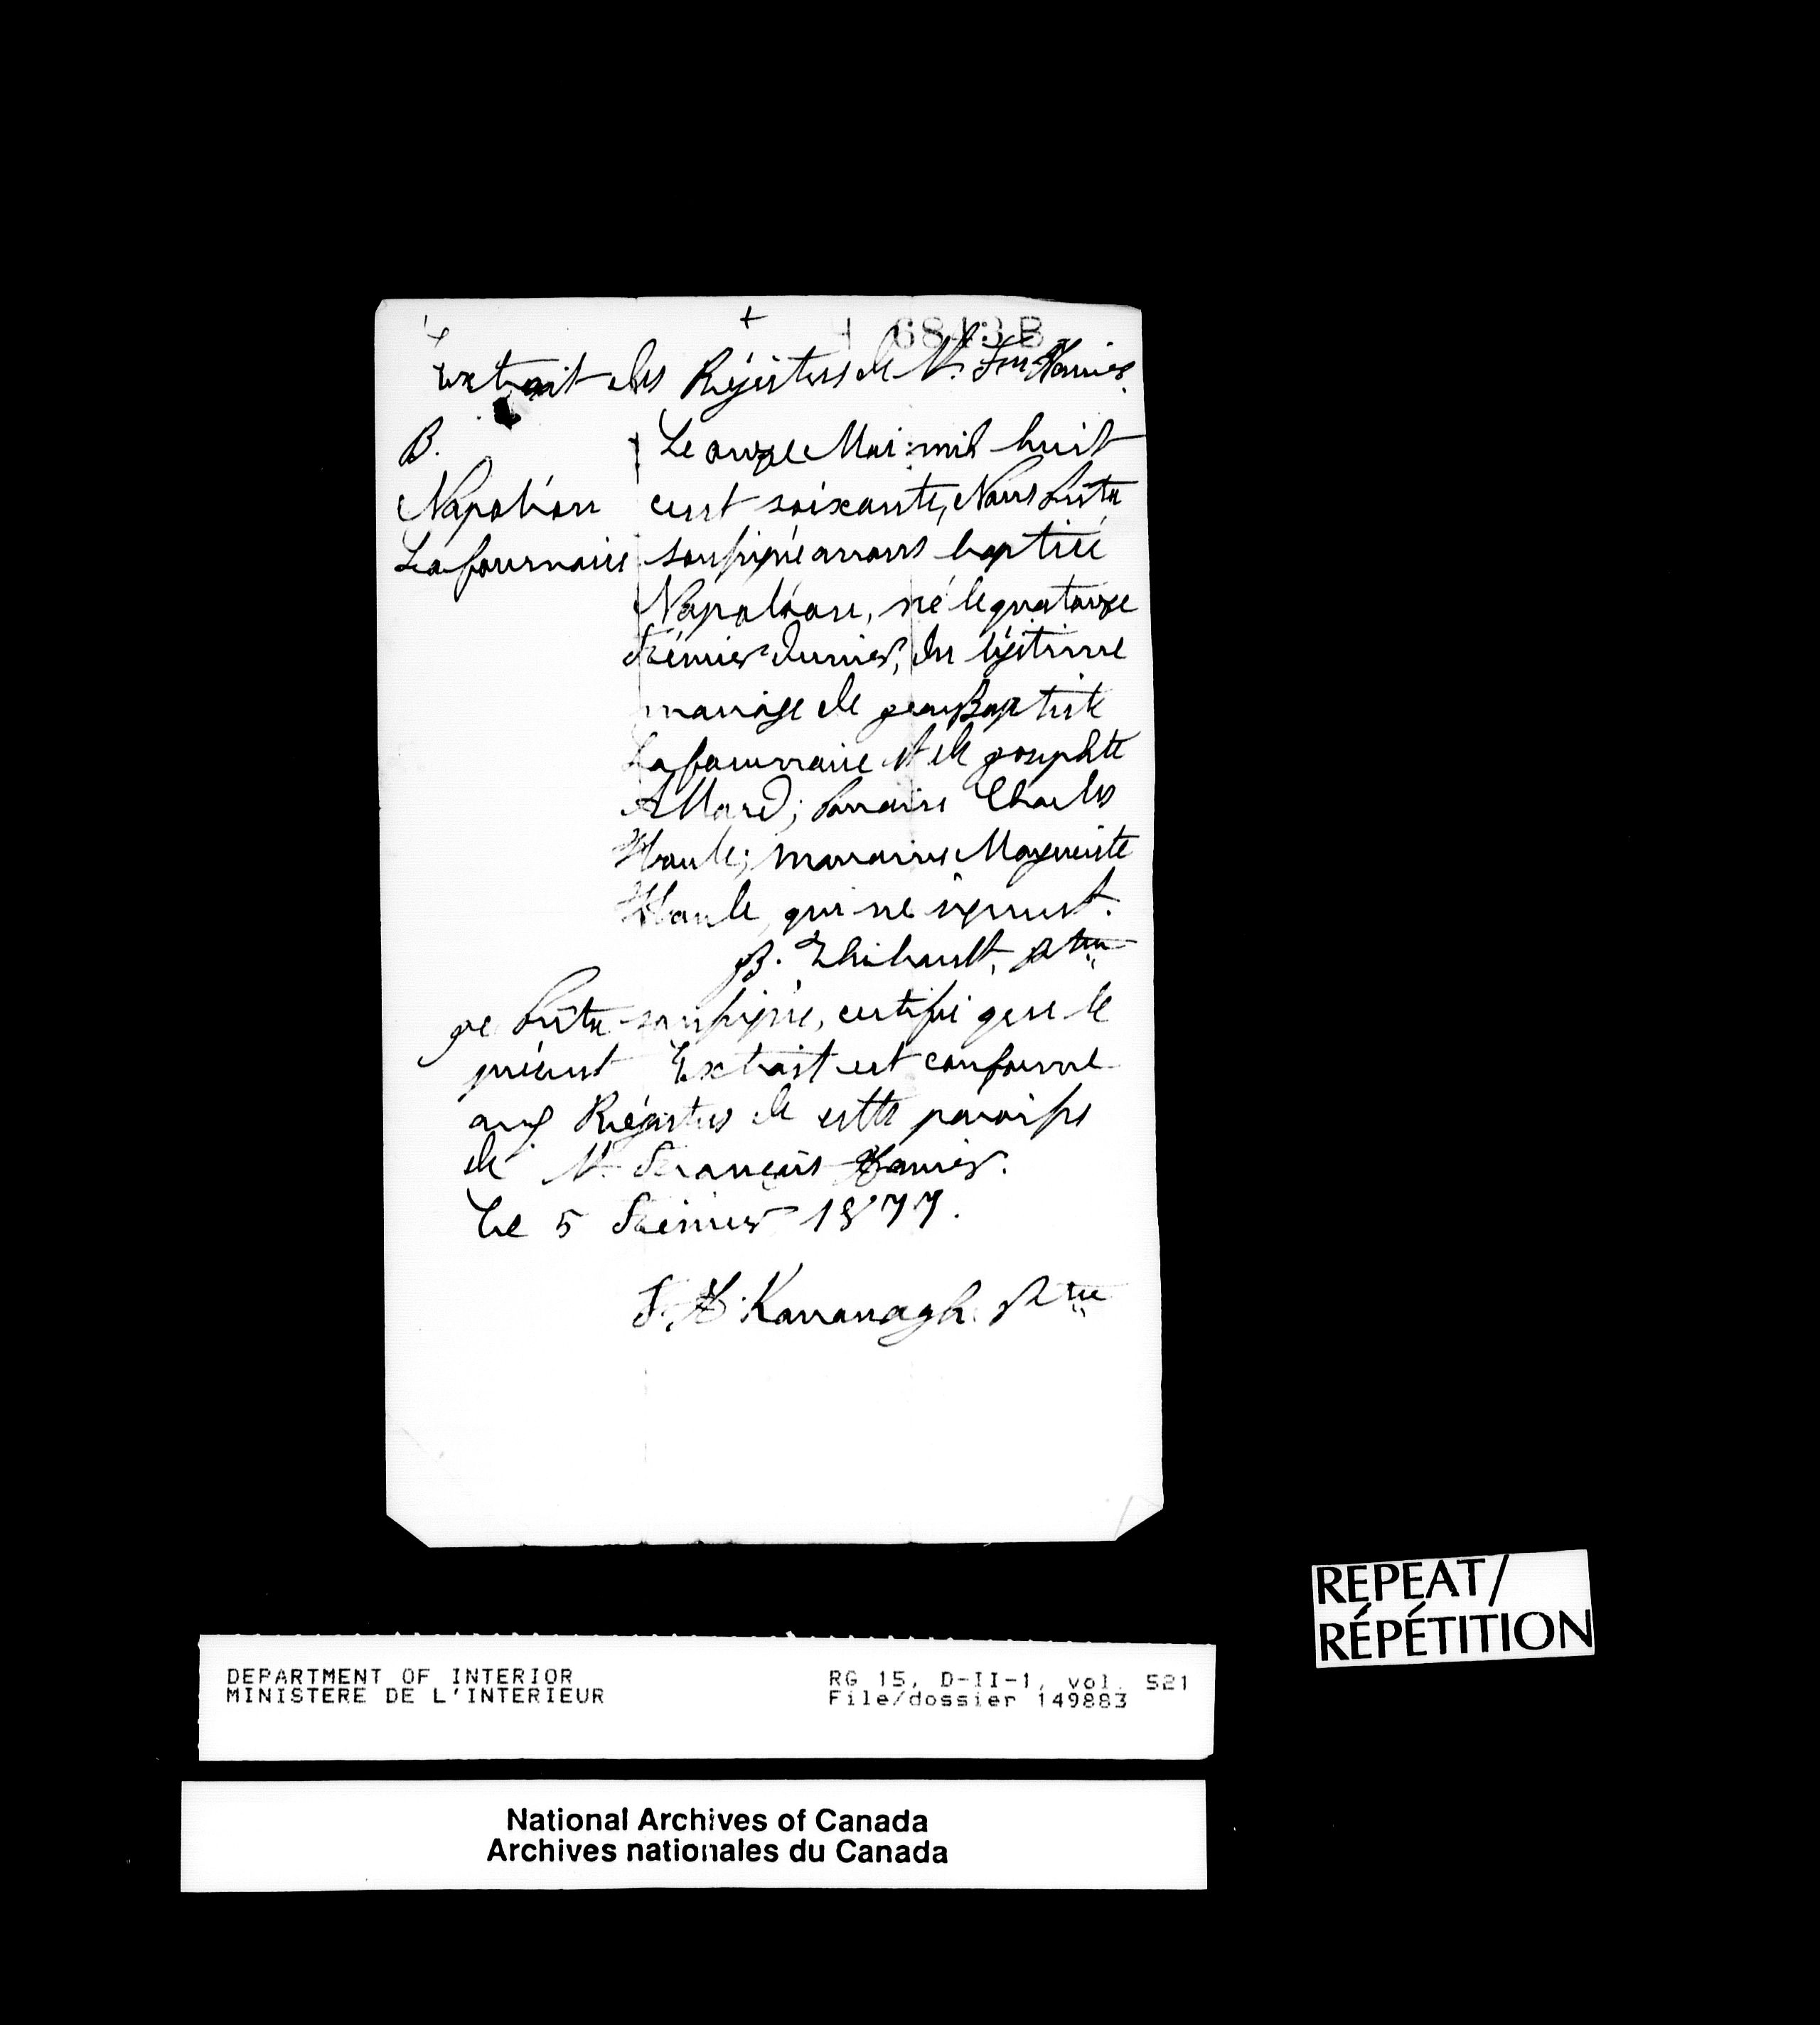 +
H 6843 B
Extrait des Régistres de St. Frs Xavier.
B.
Napoléon
Lafournaise
Le onze Mai mil huit
cent soixante, Nous Prêtre
soussigné avons baptisé
Napoléon, né le quatorze
Février dernier, du légitime
mariage de Jean Baptiste
Lafournaise et de Josephte
Allard; Parrain Charles
marraine Marguerite
qui ne signent.
B. Thibault, Ptre
Je Prêtre soussigné, certifie que le
présent Extrait est conforme
aux Régistres de cette paroisse
de St. François Xavier.
Le 5 Février 1877.
F. X. Kavanagh. Ptre
REPEAT/
RÉPÉTITION
DEPARTMENT OF INTERIOR
MINISTERE DE L'INTERIEUR
RG 15, D-II-1, vol. 521
File/dossier 149883
National Archives of Canada
Archives nationales du Canada